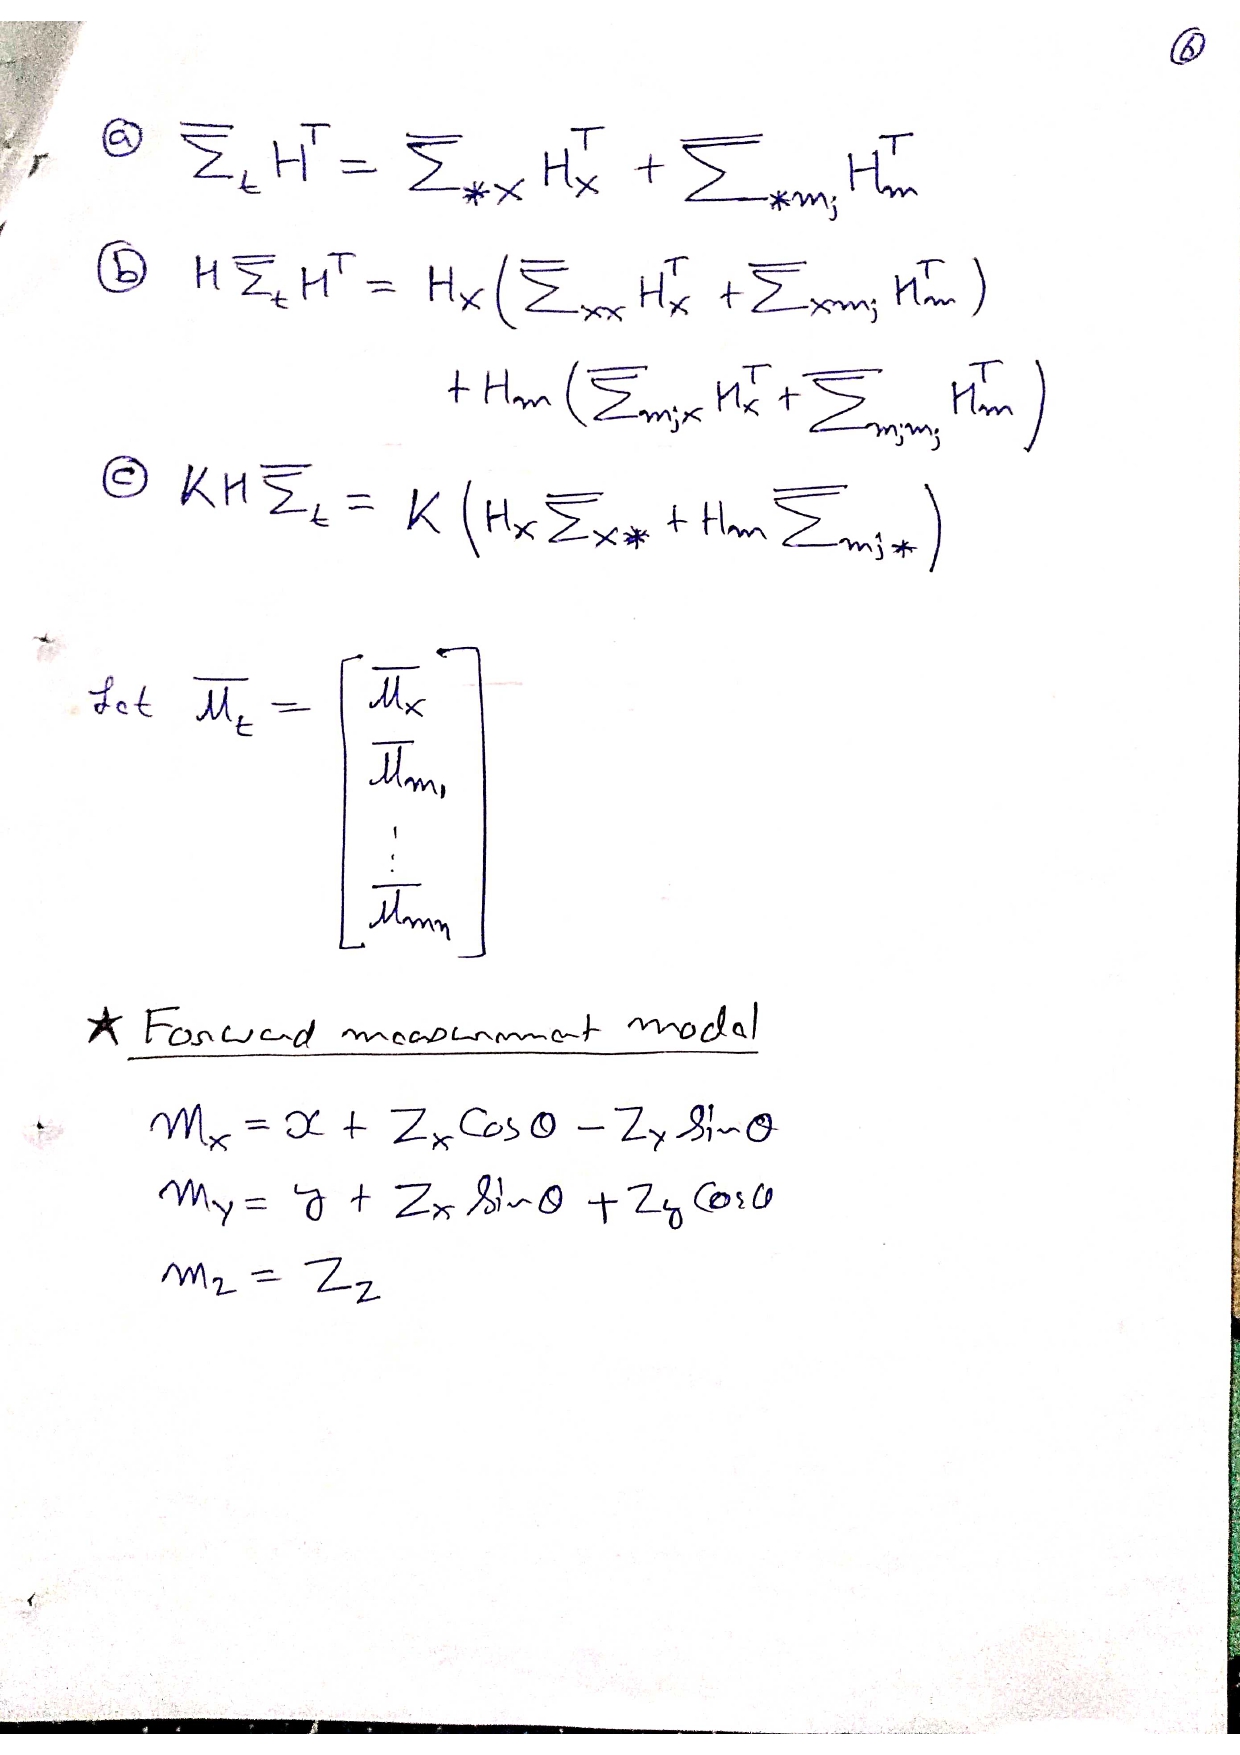 ⑥
ⓐ Σ̅_t Hᵀ = Σ̅_{*x} H_xᵀ + Σ̅_{*m_j} H_mᵀ
ⓑ H Σ̅_t Hᵀ = H_x ( Σ̅_{xx} H_xᵀ + Σ̅_{xm_j} H_mᵀ )
+ H_m ( Σ̅_{m_jx} H_xᵀ + Σ̅_{m_jm_j} H_mᵀ )
ⓒ K H Σ̅_t = K ( H_x Σ̅_{x*} + H_m Σ̅_{m_j*} )
Let μ̅_t = [ μ̅_x
μ̅_{m_1}
⋮
μ̅_{m_n} ]
★ Forward measurement model
m_x = x + Z_x Cos θ - Z_y Sin θ
m_y = y + Z_x Sin θ + Z_y Cos θ
m_z = Z_z